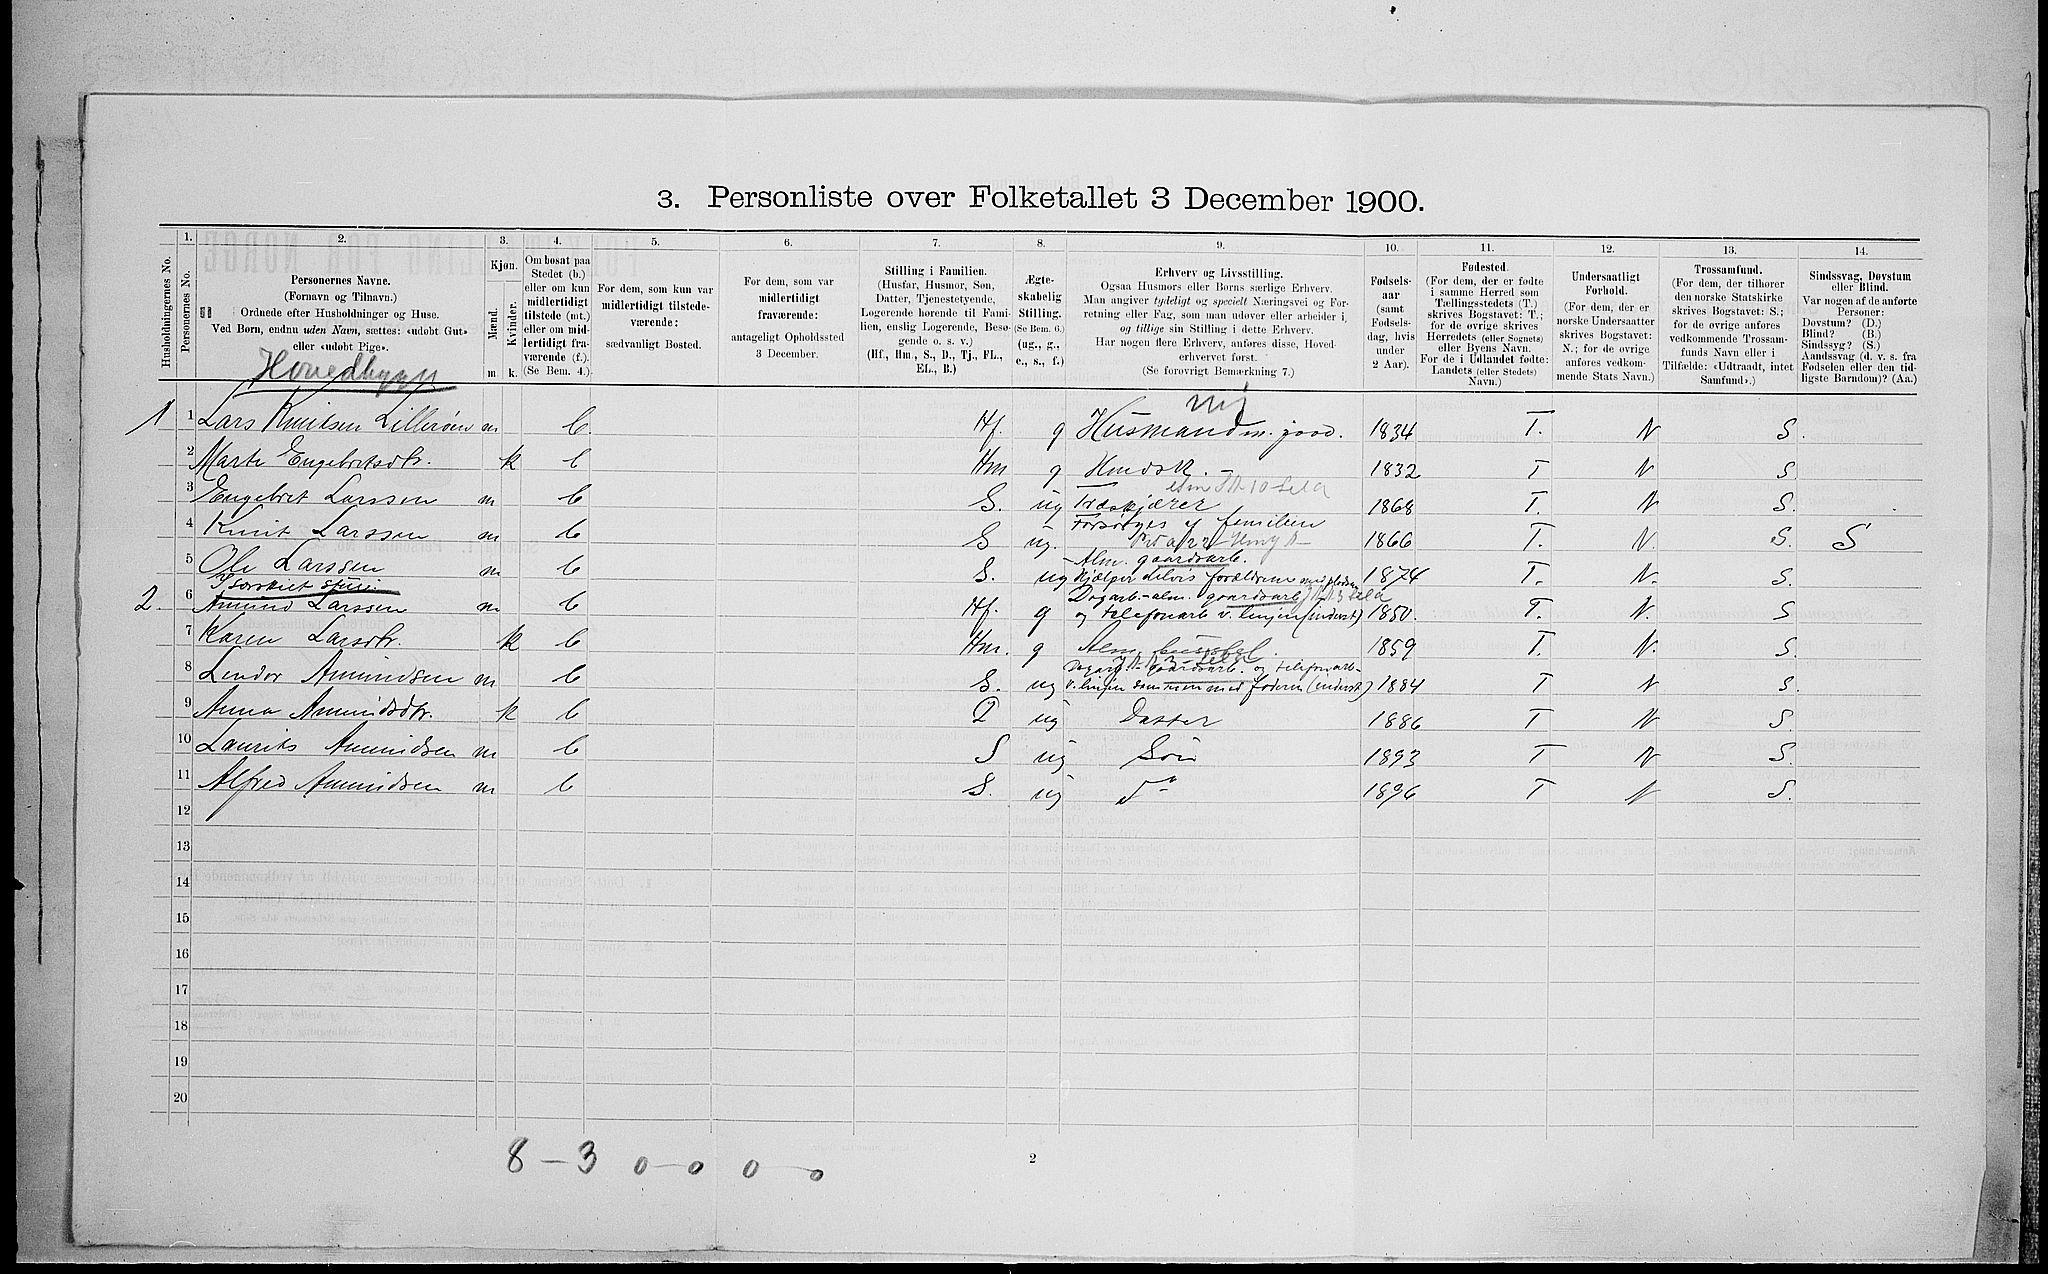 3. Personliste over Folketallet 3 December 1900.
Husholdningernes No.
1.
Personernes No.
2.
Personernes Navne.
(Fornavn og Tilnavn.)
Ordnede efter Husholdninger og Huse.
Ved Børn, endnu uden Navn, sættes: «udøbt Gut»
eller «udøbt Pige».
3.
Kjøn.
Mænd.
Kvinder.
m. k.
4.
Om bosat paa
Stedet (b.)
eller om kun
midlertidigt
tilstede (mt.)
eller om mid-
lertidigt fra-
værende (f.).
(Se Bem. 4.)
5.
For dem, som kun var
midlertidigt tilstede-
værende:
sædvanligt Bosted.
6.
For dem, som var
midlertidigt
fraværende:
antageligt Opholdssted
3 December.
7.
Stilling i Familien.
(Husfar, Husmor, Søn,
Datter, Tjenestetyende,
Logerende hørende til Fami-
lien, enslig Logerende, Besø-
gende o. s. v.)
(Hf., Hm., S., D., Tj., FL.,
EL., B.)
8.
Ægte-
skabelig
Stilling.
(Se Bem. 6.)
(ug., g.,
e., s., f.)
9.
Erhverv og Livsstilling.
Ogsaa Husmors eller Børns særlige Erhverv.
Man angiver tydeligt og specielt Næringsvei og For-
retning eller Fag, som man udøver eller arbeider i,
og tillige sin Stilling i dette Erhverv.
Har nogen flere Erhverv, anføres disse, Hoved-
erhvervet først.
(Se forøvrigt Bemærkning 7.)
10.
Fødsels-
aar
(samt
Fødsels-
dag, hvis
under
2 Aar).
11.
Fødested.
(For dem, der er fødte
i samme Herred som
Tællingsstedets (T.)
skrives Bogstavet: T.;
for de øvrige skrives
Herredets (eller Sognets)
eller Byens Navn.
For de i Udlandet fødte:
Landets (eller Stedets)
Navn.)
12.
Undersaatligt
Forhold.
(For dem, der er
norske Undersaatter
skrives Bogstavet:
N.; for de øvrige
anføres vedkom-
mende Stats Navn.)
13.
Trossamfund.
(For dem, der tilhører
den norske Statskirke
skrives Bogstavet: S.;
for de øvrige anføres
vedkommende Trossam-
funds Navn eller i
Tilfælde: «Udtraadt, intet
Samfund».)
14.
Sindssvag, Døvstum
eller Blind.
Var nogen af de anførte
Personer:
Døvstum? (D.)
Blind? (B.)
Sindssyg? (S.)
Aandssvag (d. v. s. fra
Fødselen eller den tid-
ligste Barndom)? (Aa.)
Hovedbygn
1 1 Lars Knutsen Lillerøen m b. Hf. g Husmand m. jord. 1834 T. N S.
2 Marte Engebretsdtr. k b Hm g 1832 T N S
3 Engebret Larssen m b S. ug Træskjærer 1868 T. N S.
4 Knut Larssen m b S ug. Forsørges af familien 1866 T. N. S. S
5 Ole Larssen m b S. ug Alm. gaardsarb. Hjælper delvis forældrene med pladsen 1874 T. N. S.
I særskilt stue.
2. 6 Amund Larssen m b Hf. g Dagarb. alm. gaardsarb. og telefonarb v. linjen (inderst) 1850. T. N. S
7 Karen Larsdtr. k b Hm. g Alm. husstel. 1859 T. N. S.
8 Lendor Amundsen m b S. ug Dagarb. gaardsarb. og telefonarb. v. linjen sammen med faderen (inderst) 1884 T N S.
9 Anna Amundsdtr. k b D ug Datter 1886 T N S.
10 Laurits Amundsen m b S ug Søn 1893 T N S.
11 Alfred Amundsen m b S. ug do 1896 T N S.
12
13
14
15
16
17
18
19
20
8 – 3 0 – 0 0 – 0
2